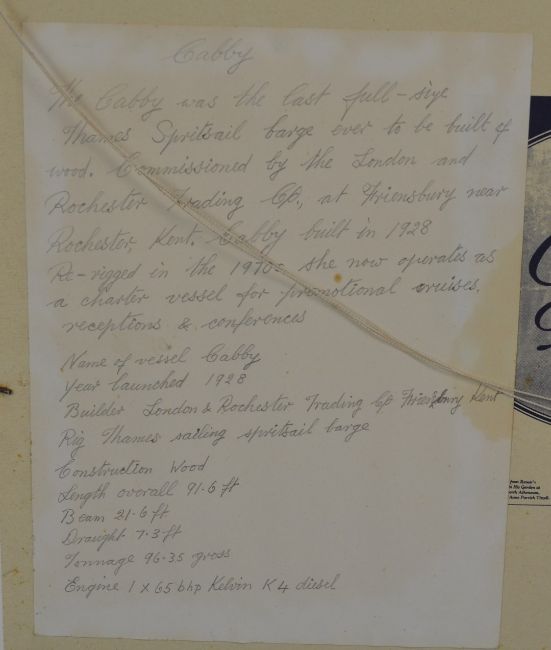 Cabby
The Cabby was the last full-size
Thames Spritsail barge ever to be built of
wood. Commissioned by the London and
Rochester Trading Co., at Friensbury near
Rochester, Kent. Cabby built in 1928
Re-rigged in the 1970s she now operates as
a charter vessel for promotional cruises.
receptions & conferences
Name of vessel Cabby
Year launched 1928
Builder London & Rochester Trading Co Friensbury Kent
Rig Thames sailing spritsail barge
Construction Wood
Length overall 91.6 ft
Beam 21.6 ft
Draught 7.3 ft
Tonnage 96.35 gross
Engine 1 x 65 bhp Kelvin K4 diesel